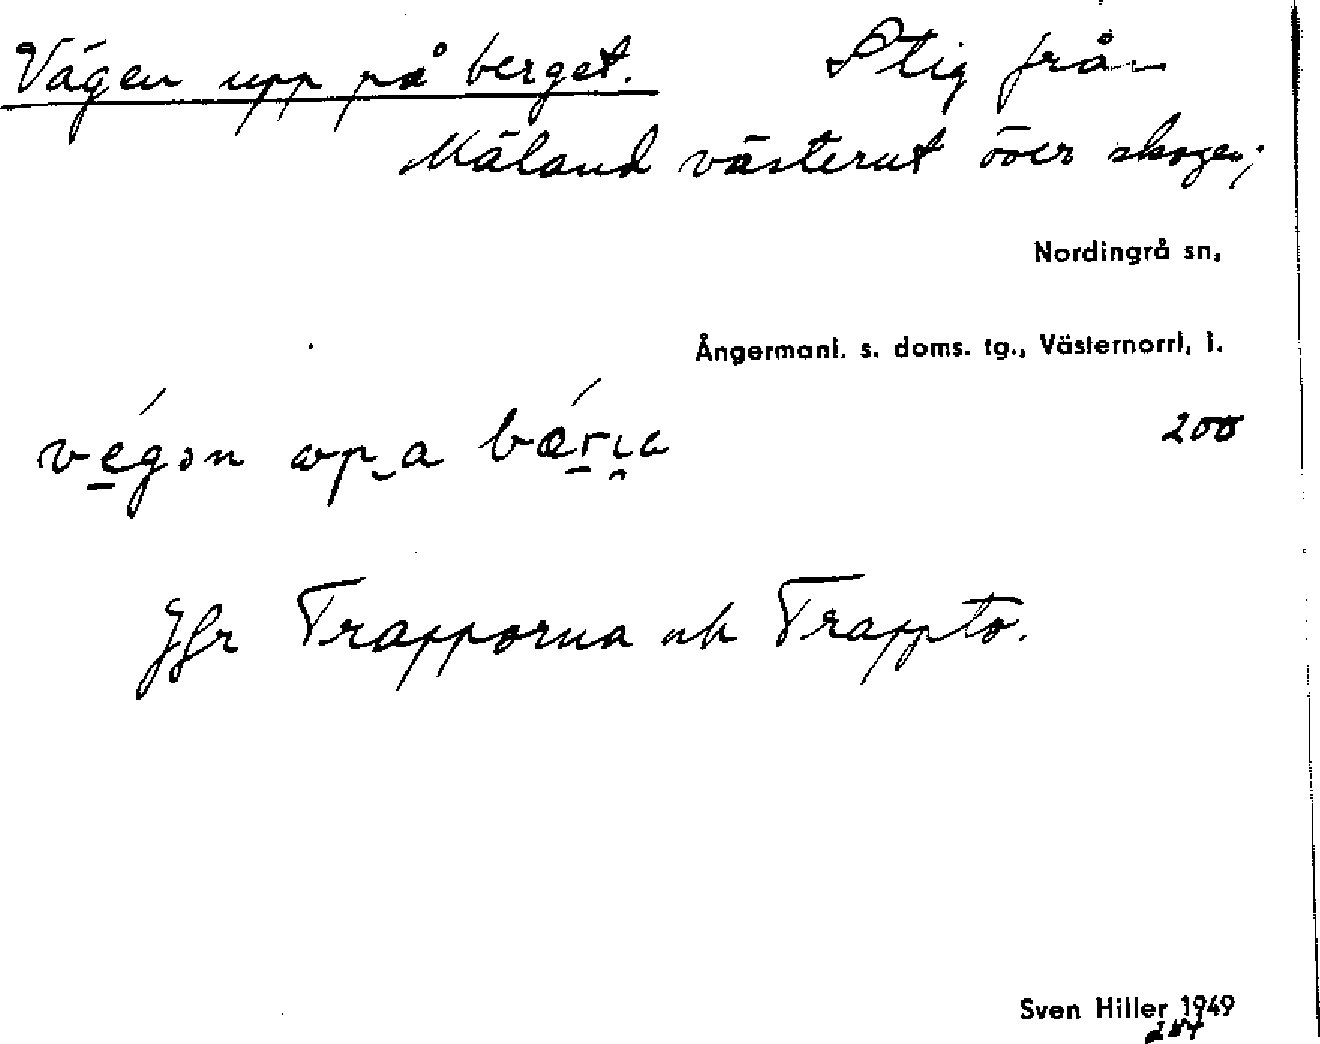 Vägen upp på berget. Stig från
Mäland västerut över skogen;
Nordingrå sn,
Ångermanl. s. doms. tg., Västernorrl, l.
200
Jfr Trapporna och Trappto.
Sven Hiller 1949